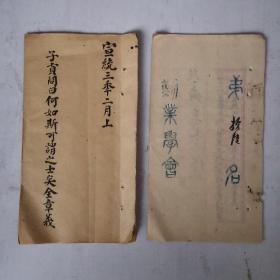 宣統三年二月上
子貢問曰何如斯可謂之士矣全章義
第 拾陸 名
業學會